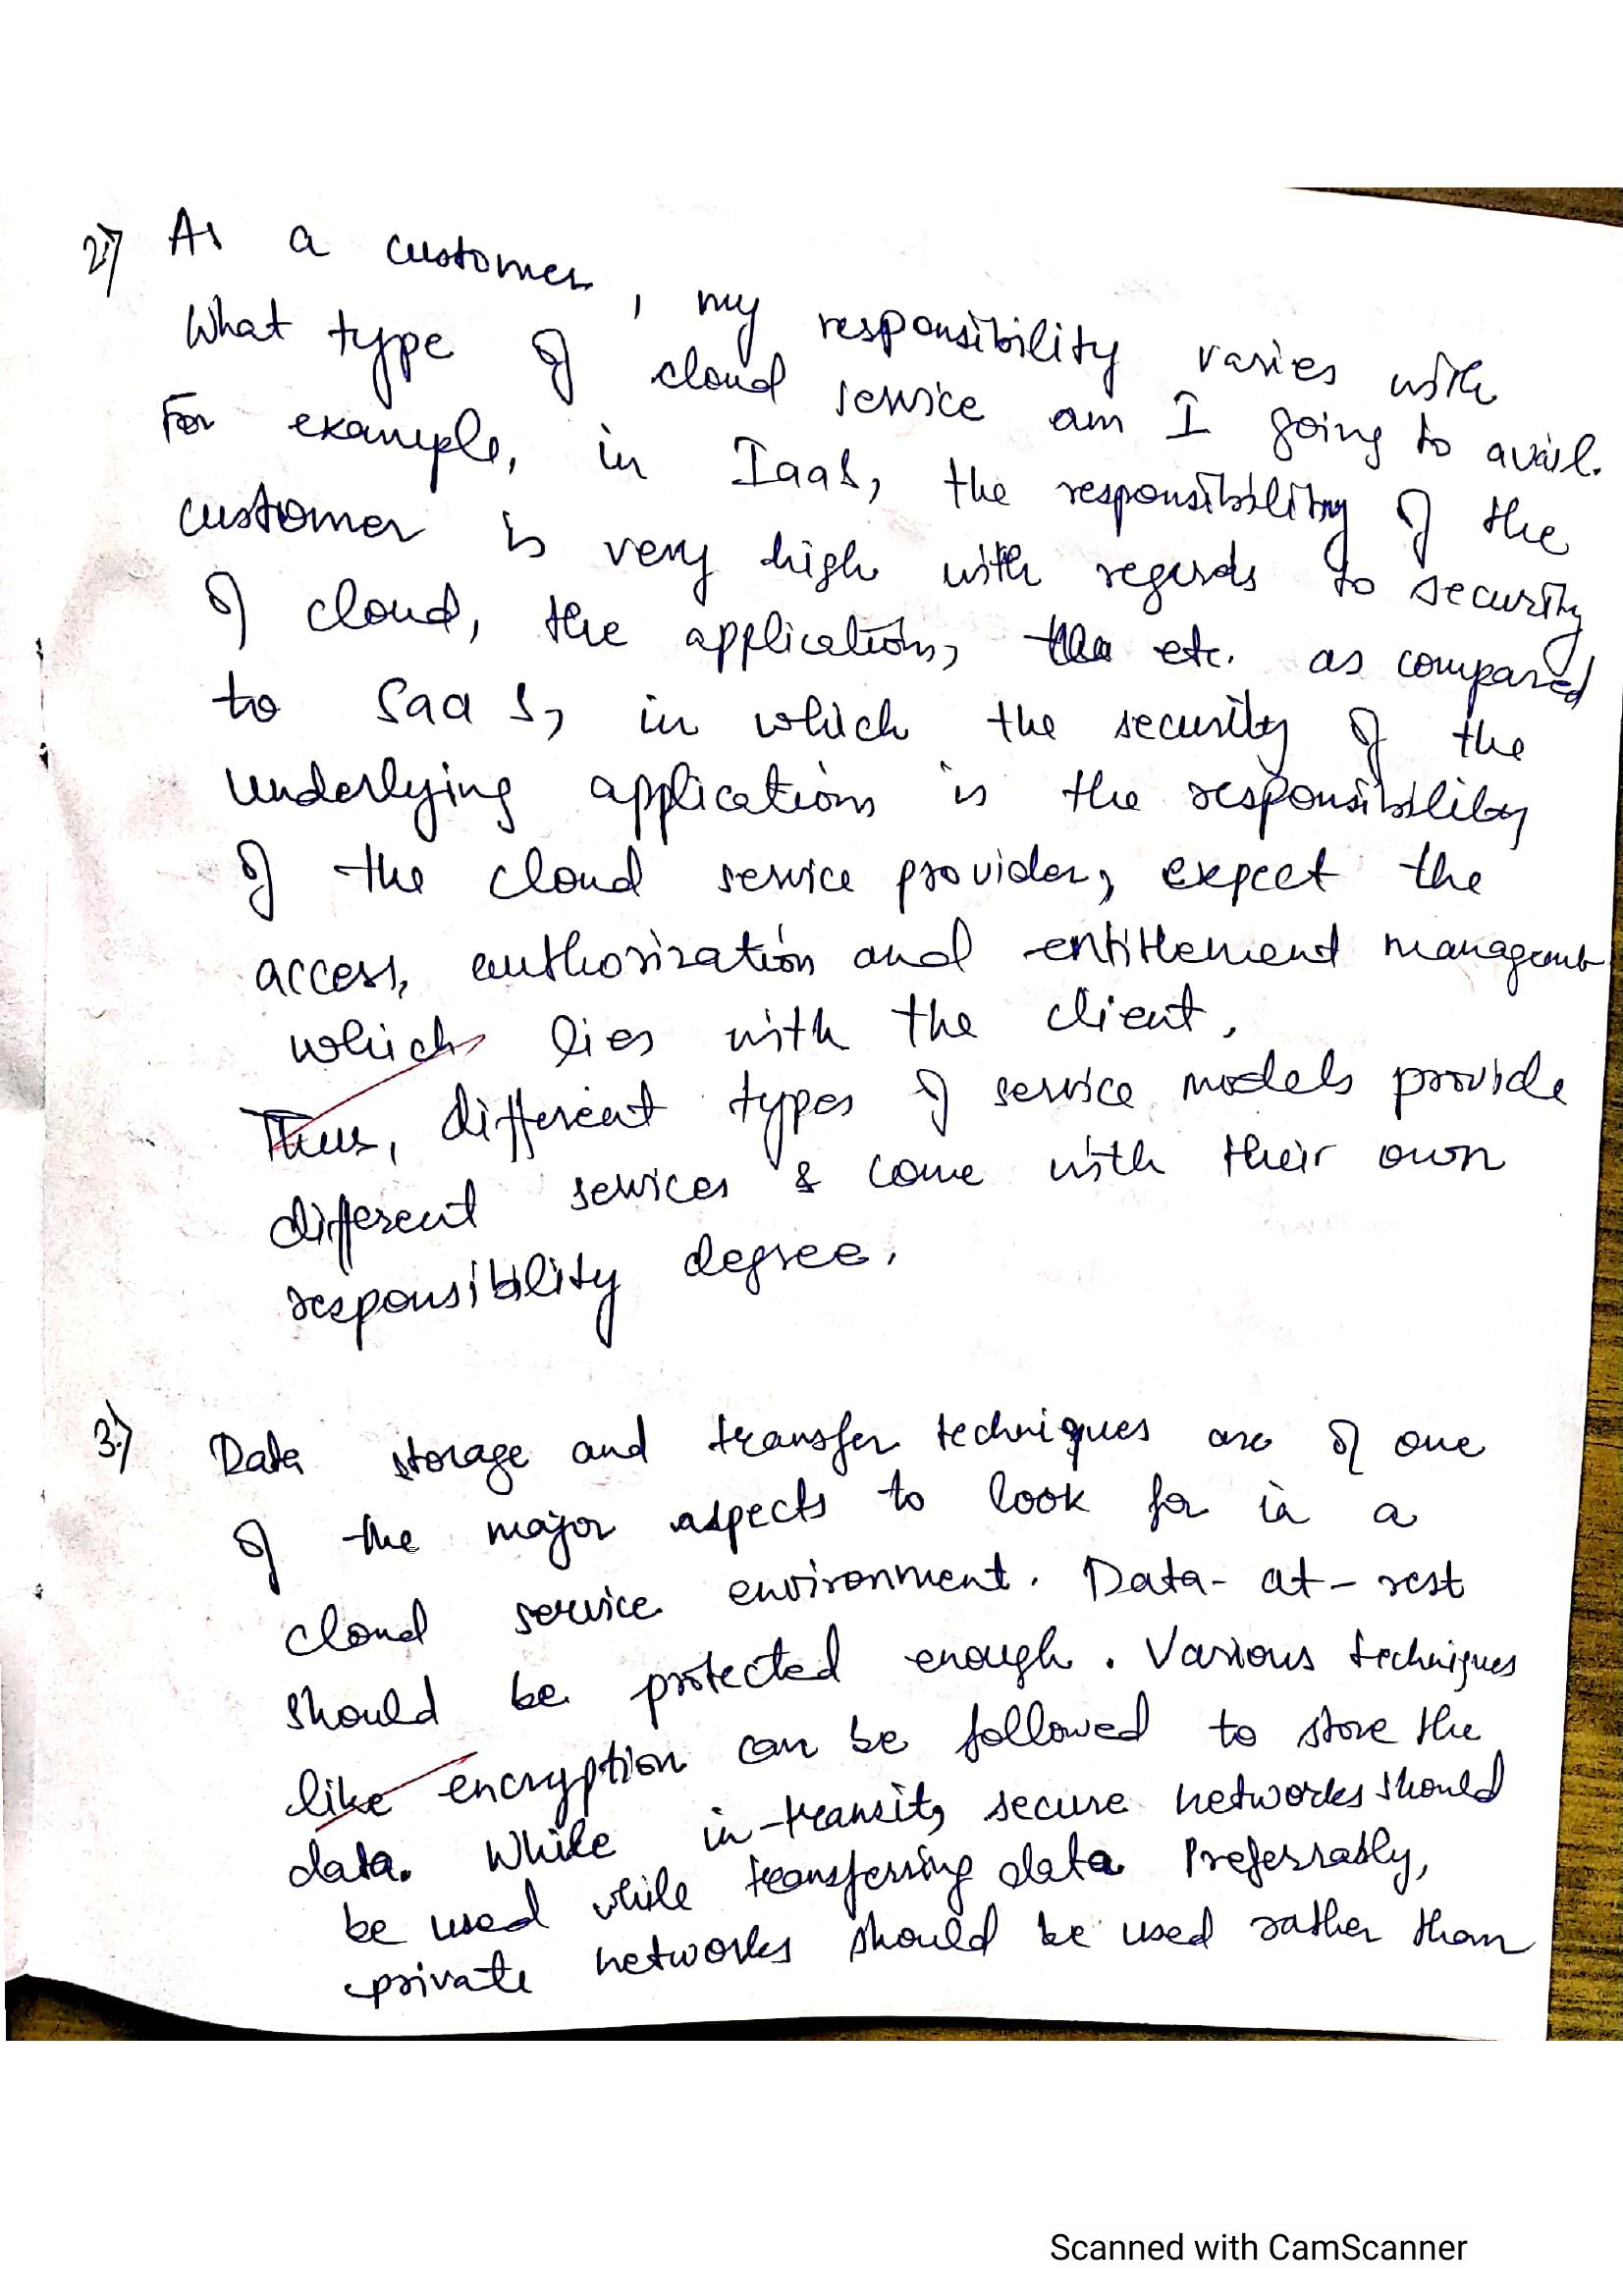 2.) As a customer, my responsibility varies with
What type of cloud service am I going to avail.
For example, in IaaS, the responsibility of the
customer is very high with regards to security
of cloud, the application, the etc. as compared
to SaaS, in which the security of the
underlying application is the responsibility
of the cloud service provider, expect the
access, authorization and entitlement managemt
which lies with the client.
Thus, different types of service models provide
different services & come with their own
responsibility degree.
3.) Data storage and transfer techniques are of one
of the major aspects to look for in a
cloud service environment. Data-at-rest
should be protected enough. Various techniques
like encryption can be followed to store the
data. While in-transit, secure networks should
be used while transferring data. Preferrably,
private networks should be used rather than
Scanned with CamScanner